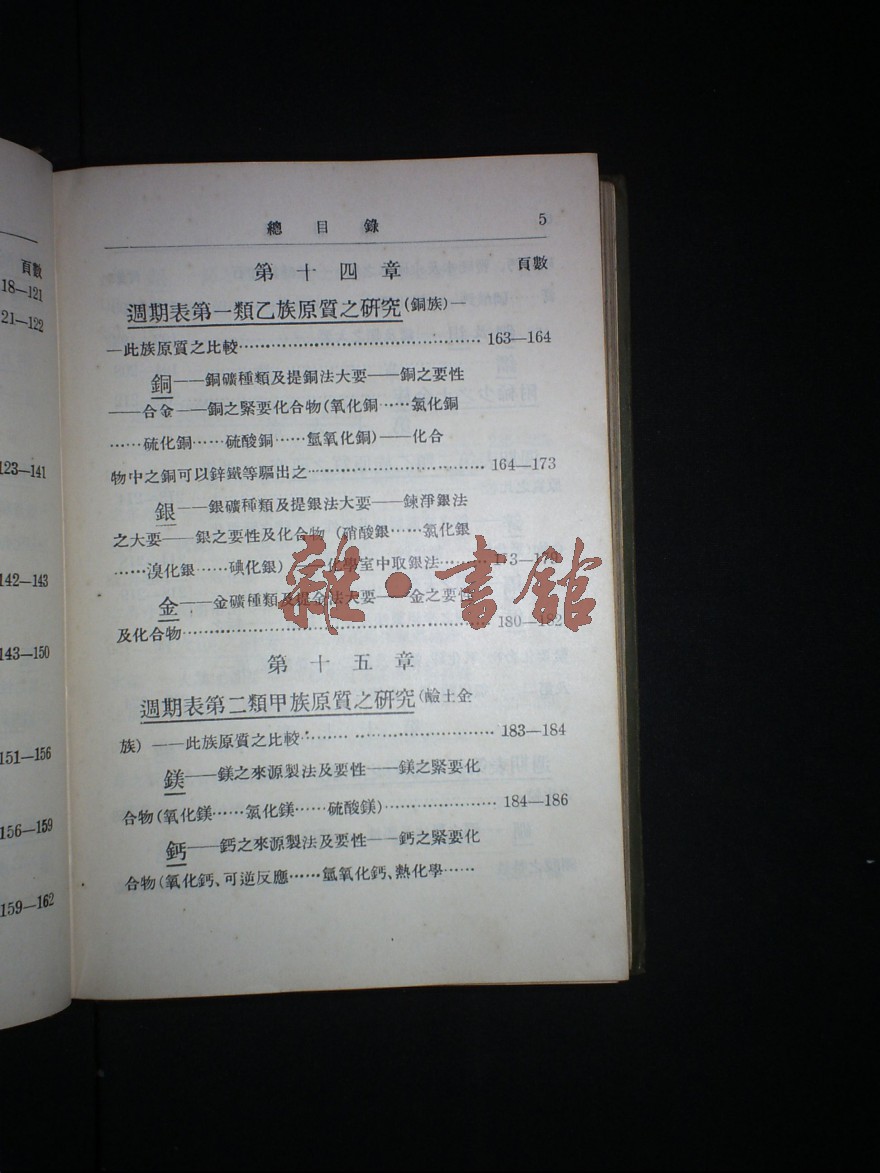 頁數
18—121
21—122
123—141
142—143
143—150
151—156
156—159
159—162
總目錄 5
第十四章 頁數
週期表第一類乙族原質之研究(銅族)—
—此族原質之比較……………………………… 163—164
銅——銅礦種類及提銅法大要——銅之要性
——合金——銅之緊要化合物(氧化銅……氯化銅
……硫化銅……硫酸銅……氫氧化銅)——化合
物中之銅可以鋅鐵等驅出之…………………… 164—173
銀——銀礦種類及提銀法大要——鍊淨銀法
之大要——銀之要性及化合物(硝酸銀……氯化銀
……溴化銀……碘化銀)——化學室中取銀法……… 173—179
金——金礦種類及提金法大要——金之要性
及化合物……………………………………… 180—182
第十五章
週期表第二類甲族原質之研究(鹼土金
族)——此族原質之比較……………………… 183—184
鎂——鎂之來源製法及要性——鎂之緊要化
合物(氧化鎂……氯化鎂……硫酸鎂)……………… 184—186
鈣——鈣之來源製法及要性——鈣之緊要化
合物(氧化鈣、可逆反應……氫氧化鈣、熱化學……
雜·書館